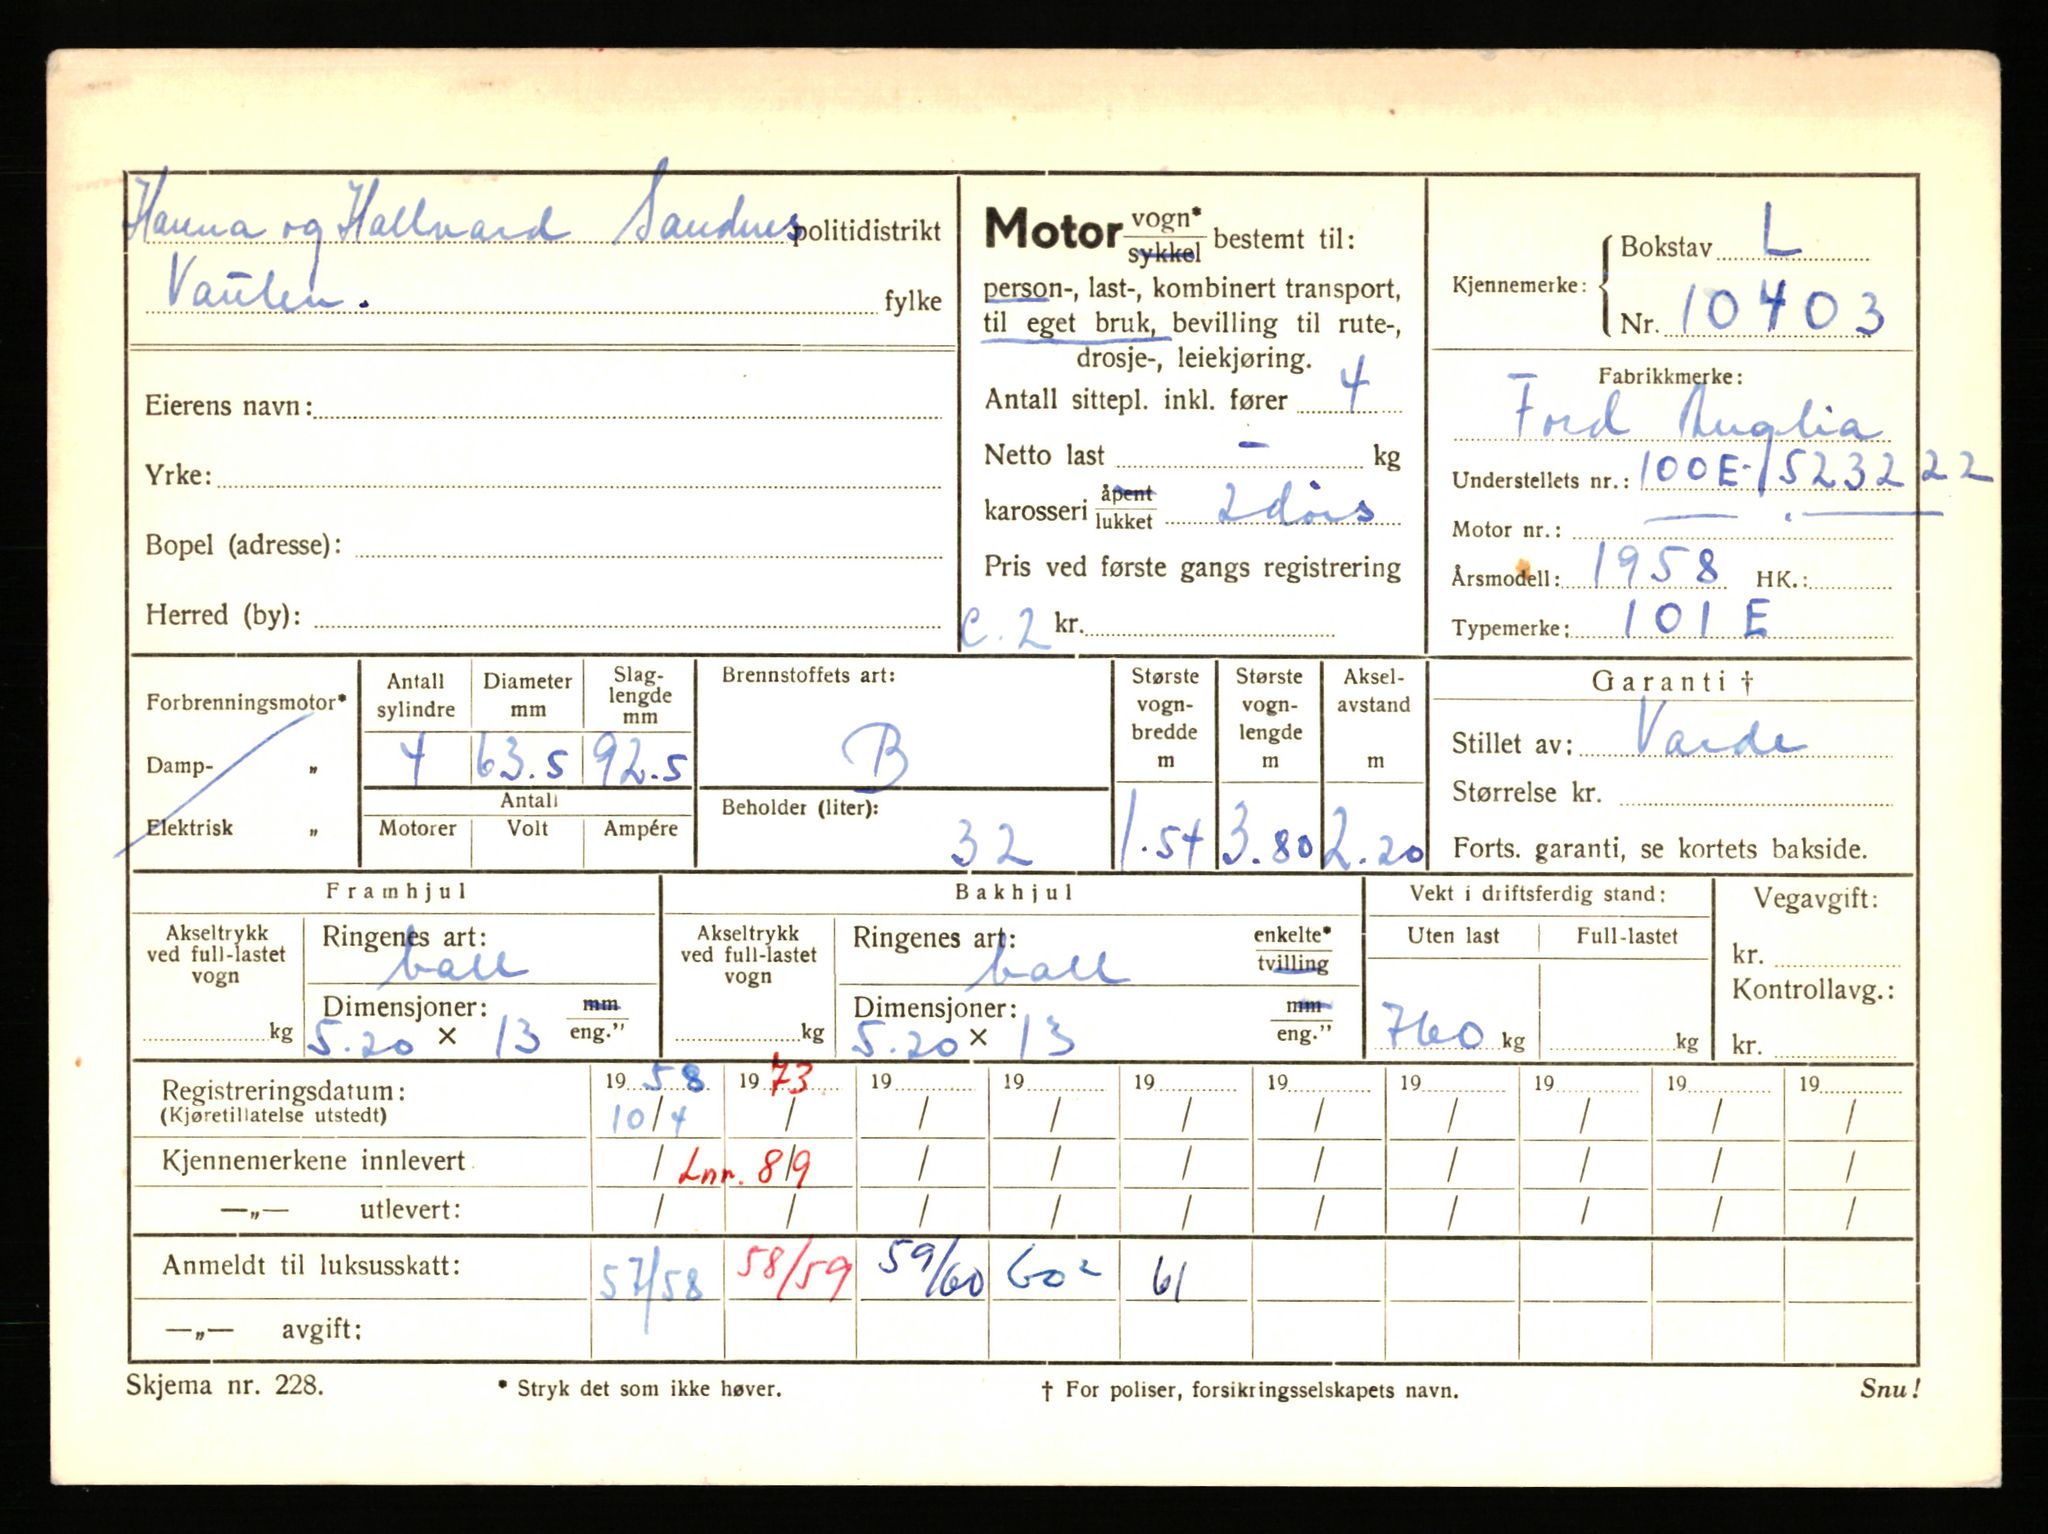 Hanna og Hallvard Sandnes politidistrikt
Vaulen. fylke
Eierens navn:
Yrke:
Bopel (adresse):
Herred (by):
Motor vogn* sykkel bestemt til:
person-, last-, kombinert transport,
til eget bruk, bevilling til rute-,
drosje-, leiekjøring.
Antall sittepl. inkl. fører 4
Netto last – kg
karosseri åpent lukket 2 dørs
Pris ved første gangs registrering
C. 2 kr.
Kjennemerke: Bokstav L
Nr. 10403
Fabrikkmerke:
Ford Anglia
Understellets nr.: 100E-1523222
Motor nr.:
Årsmodell: 1958 HK.:
Typemerke: 101 E
Forbrenningsmotor*
Damp- „
Elektrisk „
Antall sylindre 4
Diameter mm 63.5
Slag-lengde mm 92.5
Antall
Motorer Volt Ampére
Brennstoffets art:
B
Beholder (liter):
32
Største vogn-bredde m 1.54
Største vogn-lengde m 3.80
Aksel-avstand m 2.20
Garanti †
Stillet av: Varde
Størrelse kr.
Forts. garanti, se kortets bakside.
Framhjul
Akseltrykk ved full-lastet vogn
kg
Ringenes art:
ball
Dimensjoner: mm
5.20 × 13 eng.”
Bakhjul
Akseltrykk ved full-lastet vogn
kg
Ringenes art: enkelte*
ball tvilling
Dimensjoner: mm
5.20 × 13 eng.”
Vekt i driftsferdig stand:
Uten last Full-lastet
760 kg kg
Vegavgift:
kr.
Kontrollavg.:
kr.
Registreringsdatum: 19 58 19 73 19 19 19 19 19 19 19 19
(Kjøretillatelse utstedt) 10/4 / / / / / / / / /
Kjennemerkene innlevert / Lnr. 8/9 / / / / / / / /
—„— utlevert: / / / / / / / / / /
Anmeldt til luksusskatt: 57/58 58/59 59/60 60² 61
—„— avgift:
Skjema nr. 228. * Stryk det som ikke høver. † For poliser, forsikringsselskapets navn. Snu!